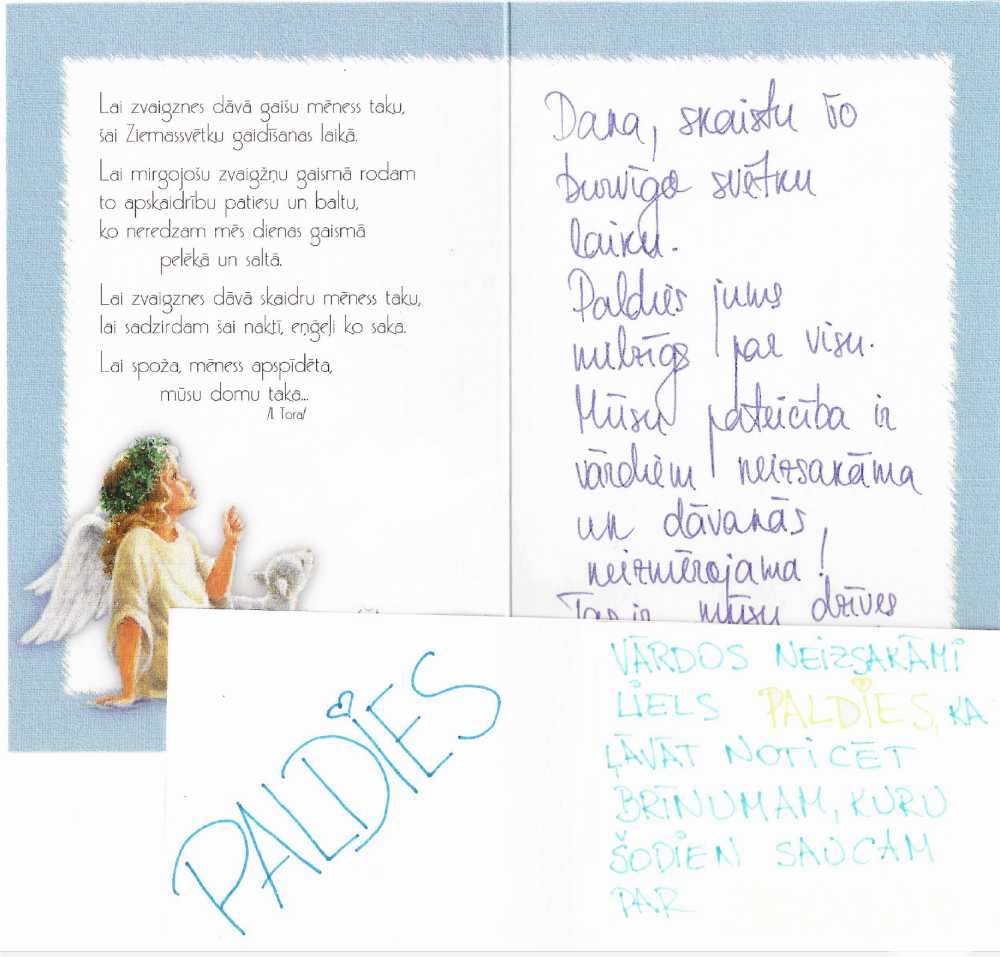 Lai zvaigznes dāvā gaišu mēness taku,
šai Ziemassvētku gaidīšanas laikā.
Lai mirgojošu zvaigžņu gaismā rodam
to apskaidrību patiesu un baltu,
ko neredzam mēs dienas gaismā
pelēkā un saltā.
Lai zvaigznes dāvā skaidru mēness taku,
lai sadzirdam šai naktī, eņģeļi ko saka.
Lai spoža, mēness apspīdēta,
mūsu domu taka...
/I. Tora/
skaistu šo
burvīgo svētku
laiku.
Paldies jums
milzīgs par visu.
Mūsu pateicība ir
vārdiem neizsakāma
un dāvanās
neizmērojama!
Tas ir mūsu dzīves
PALDIES
VĀRDOS NEIZSAKĀMI
LIELS PALDIES, KA
ĻĀVĀT NOTICĒT
BRĪNUMAM, KURU
ŠODIEN SAUCAM
PAR